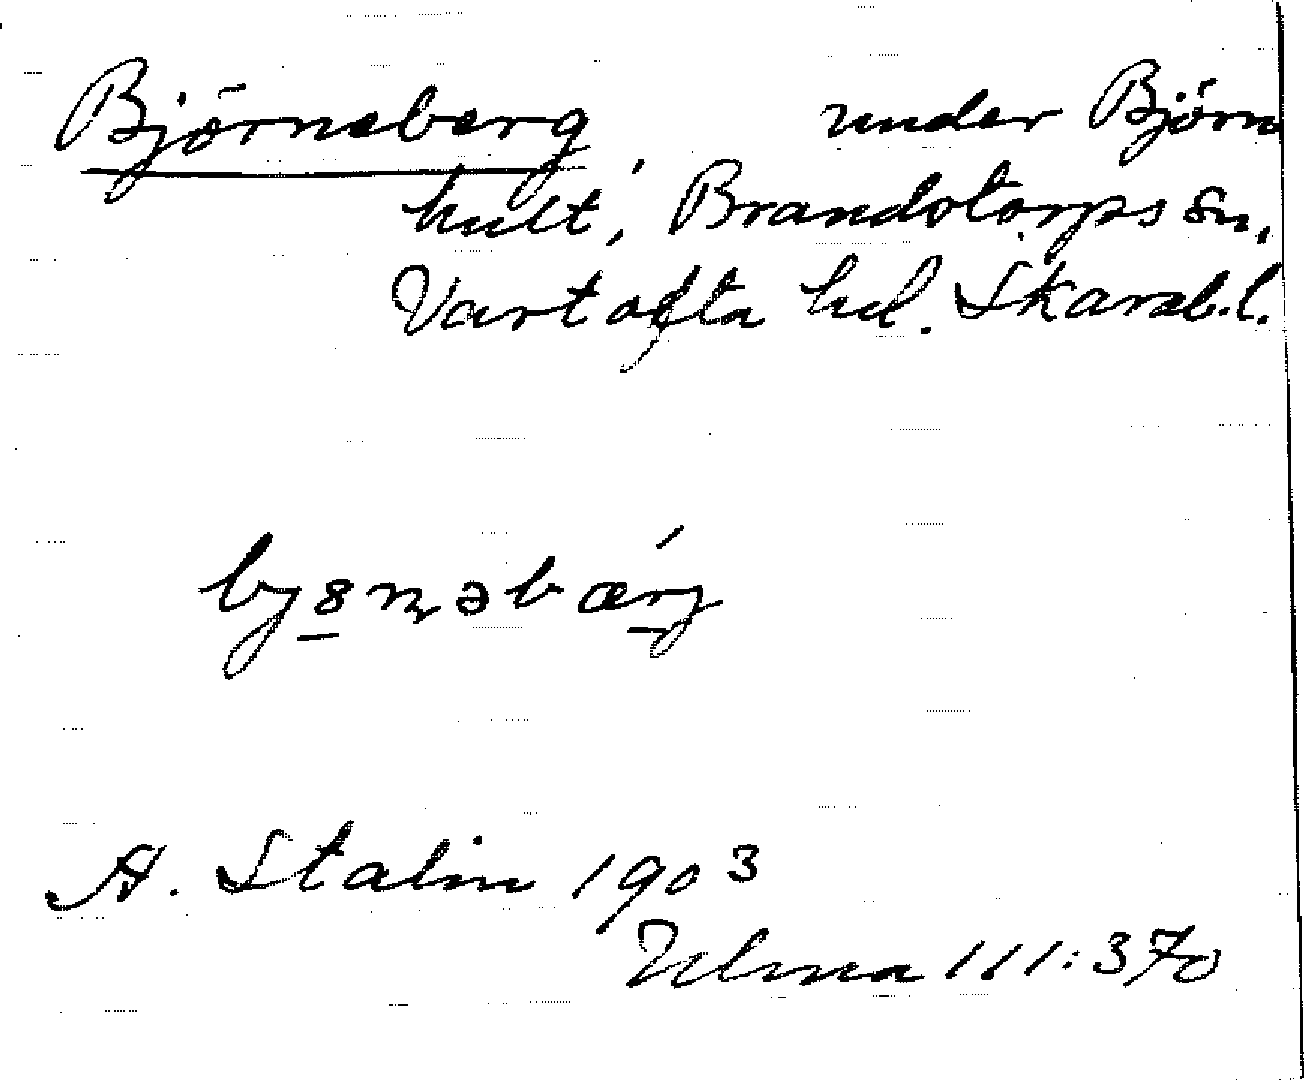 Björneberg, under Björn
hult, Brandstorps sn,
Vartofta hd. Skarab.l.
bjɞn̥əbærj
A. Stalin 1903
Ulma 111:370